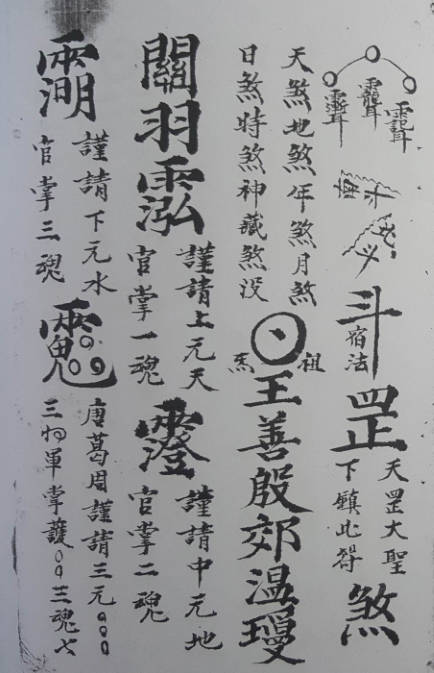 斗
宿法
罡
天罡大聖
下鎮此
煞
天煞地煞年煞月煞
日煞時煞神藏煞没
祖
馬
王善殷郊温瓊
關羽
謹請上元天
官掌一魂
謹請中元地
官掌二魂
謹請下元水
官掌三魂
唐葛周謹請三元
三将軍掌護三魂七